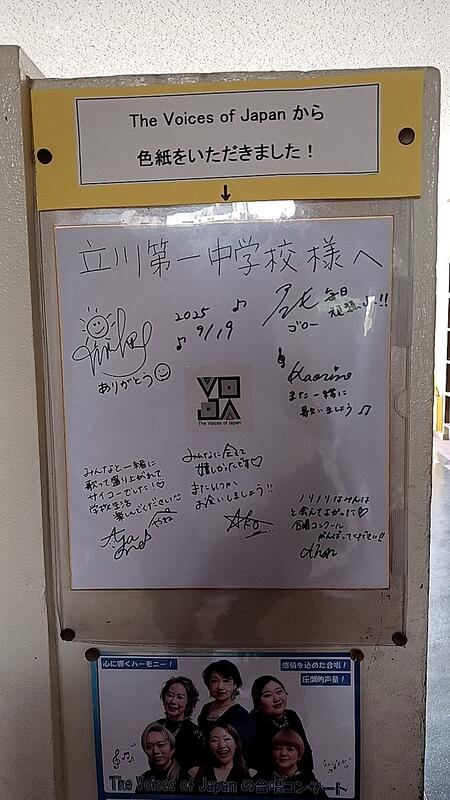 The Voices of Japan から
色紙をいただきました！
↓
立川第一中学校 様へ
2025
9/19
毎日
頑張ろう!!
ゴロー
ありがとう
VOJA
The Voices of Japan
Kaorine
また一緒に
歌いましょう♪
みんなと一緒に
歌って盛り上がれて
サイコーでした!♡
学校生活
楽しんでください
みんなに会えて
嬉しかったです♡
またいつか
お会いしましょう!!
Ako
ノリノリなみんな
と会えてよかった♡
合唱コンクール
がんばってください!!
心に響くハーモニー！
感情を込めた合唱！
圧倒的声量！
The Voices of Japan の合唱コンサート